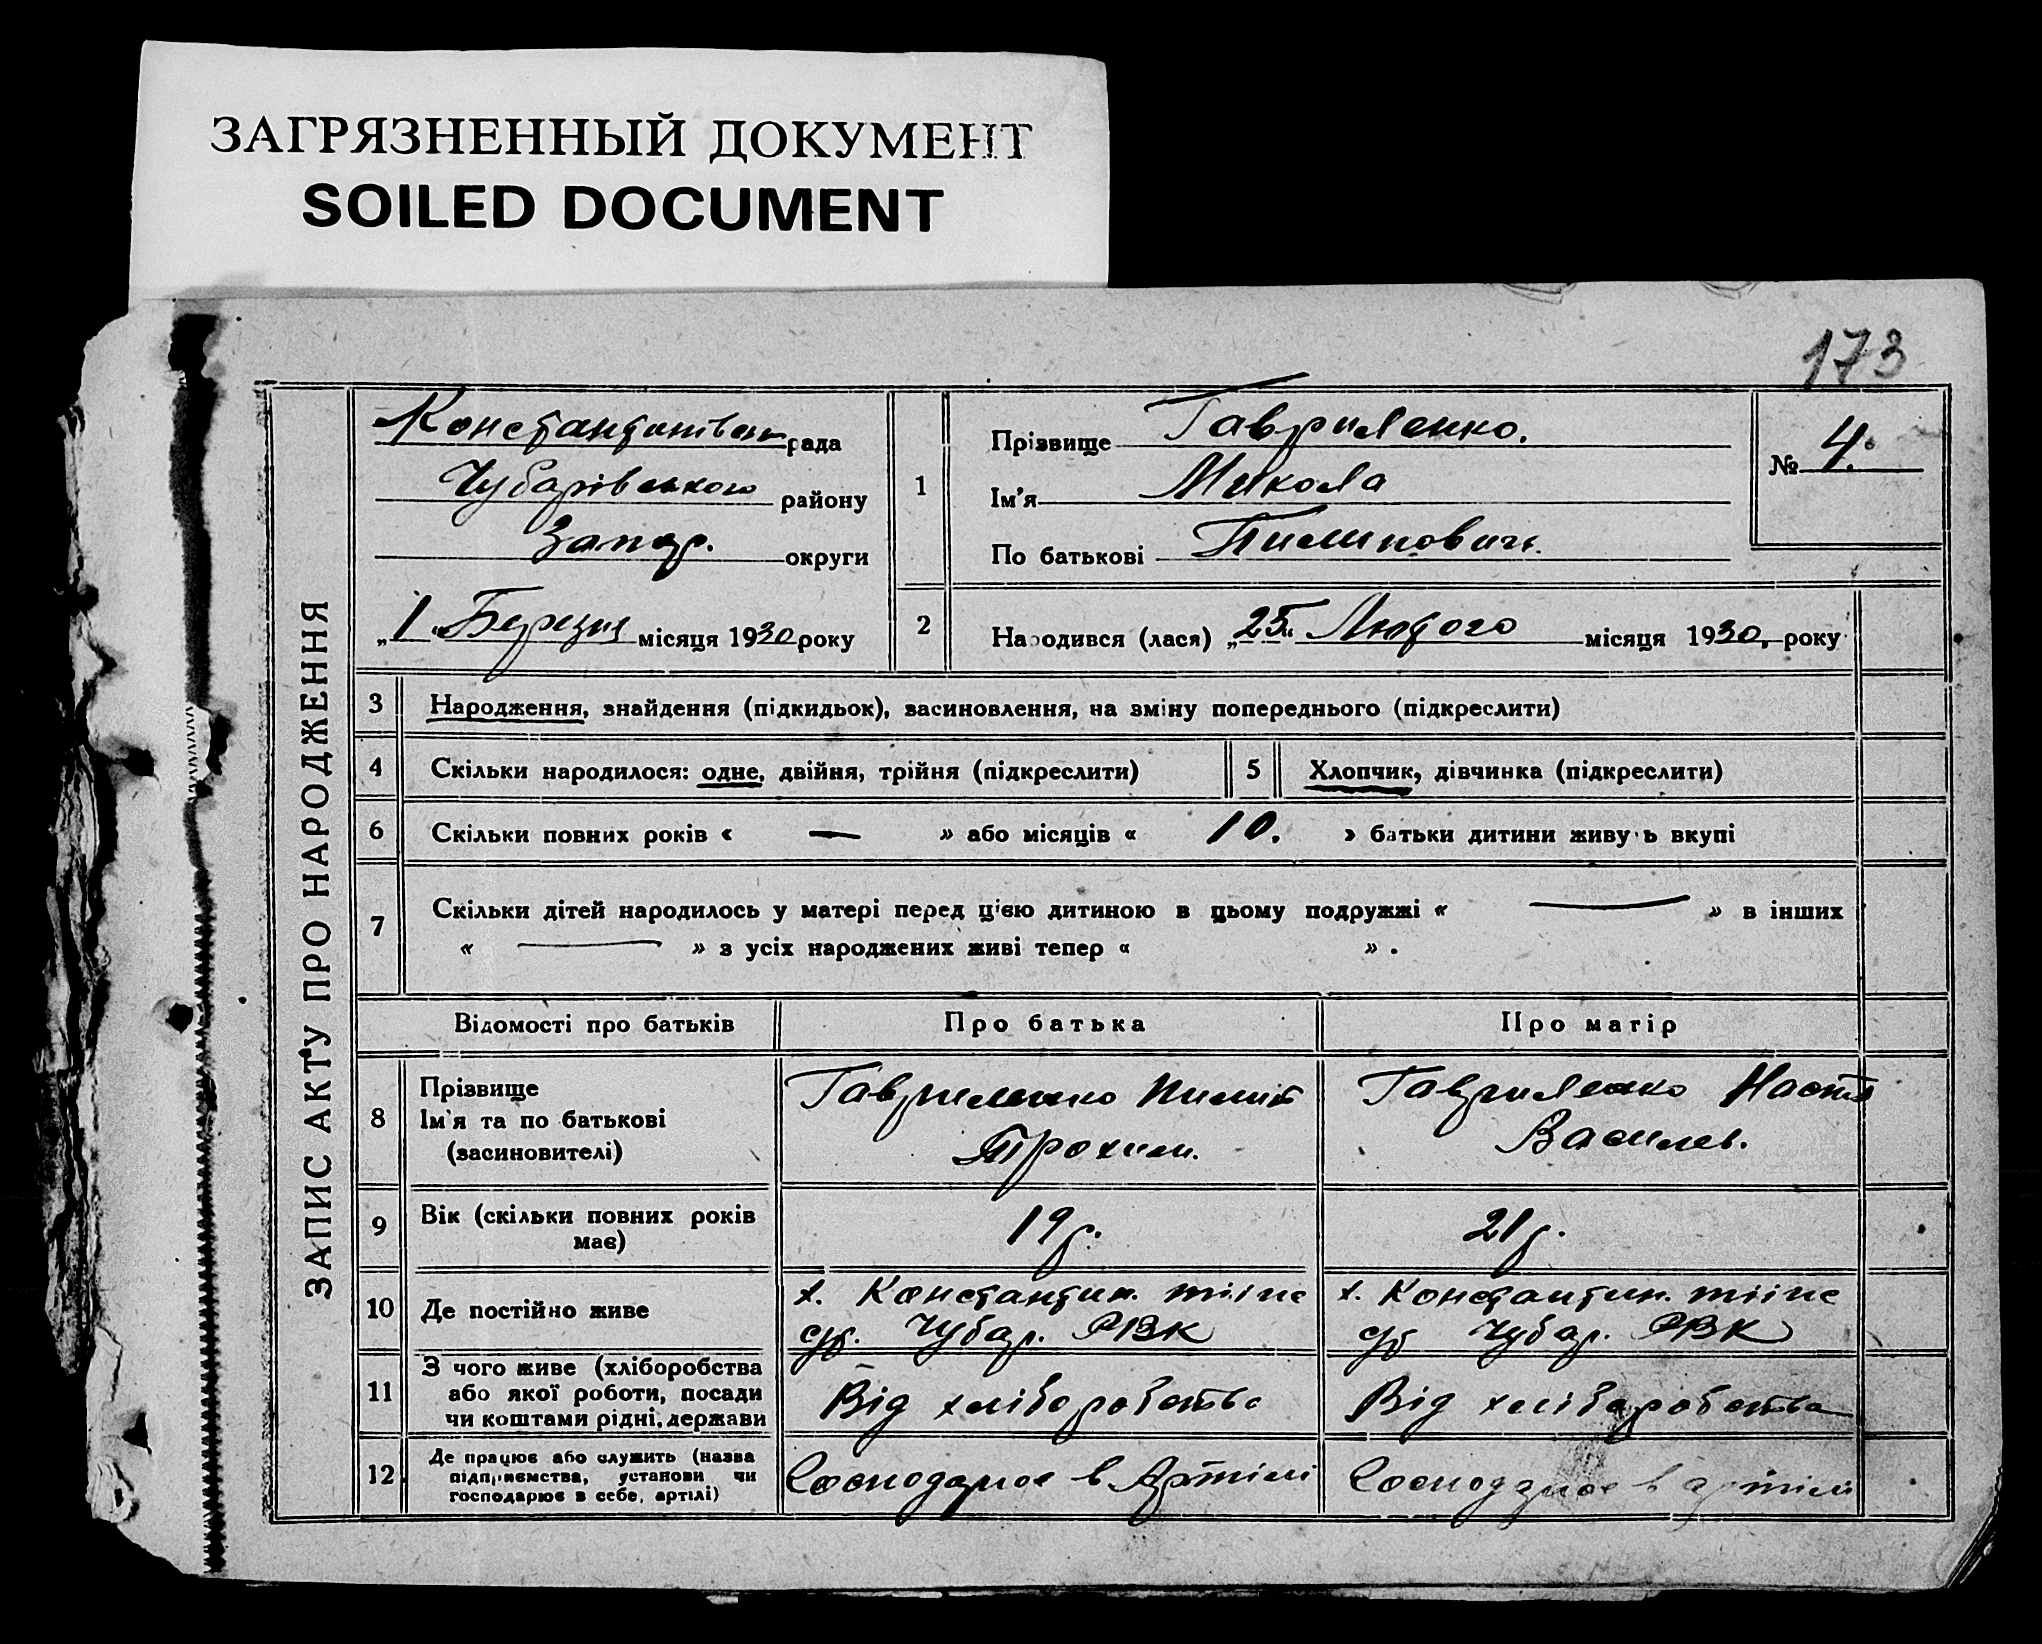 ЗАГРЯЗНЕННЫЙ ДОКУМЕНТ
SOILED DOCUMENT
173
ЗАПИС АКТУ ПРО НАРОДЖЕННЯ
рада
Чубарівського району
Запор. округи
„1“ Березня місяця 1930 року
1
Прізвище Гавриленко.
Ім'я Микола
По батькові Пилипович.
№ 4.
2
Народився (лася) „25“ Лютого місяця 1930, року
3 Народження, знайдення (підкидьок), засиновлення, на зміну попереднього (підкреслити)
4 Скільки народилося: одне, двійня, трійня (підкреслити)
5 Хлопчик, дівчинка (підкреслити)
6 Скільки повних років « — » або місяців « 10. » батьки дитини живуть вкупі
7 Скільки дітей народилось у матері перед цією дитиною в цьому подружжі « — » в інших
« — » з усіх народжених живі тепер « » .
Відомості про батьків Про батька Про матір
8 Прізвище
Ім'я та по батькові
(засиновителі)
Гавриленко Пилип
Трохим.
Гавриленко Настя
Василев.
9 Вік (скільки повних років
має)
19 р.
21 р.
10 Де постійно живе
х. Константин.
с/р. Чубар. РВК
х. Константин.
с/р Чубар. РВК
11 З чого живе (хліборобства
або якої роботи, посади
чи коштами рідні, держави
Від хліборобства
Від хліборобства
12 Де працює або служить (назва
підприємства, установи чи
господарює в себе, артілі)
Господарює в Артілі
Господарює в артілі